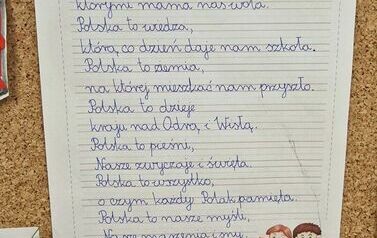 którymi mama nas woła.
Polska to wiedza,
którą, co dzień daje nam szkoła.
Polska to ziemia,
na której mieszkać nam przyszło.
Polska to dzieje
kraju nad Odrą i Wisłą.
Polska to pieśni,
Nasze zwyczaje i święta.
Polska to wszystko,
o czym każdy Polak pamięta.
Polska to nasze myśli,
Nasze marzenia i sny,